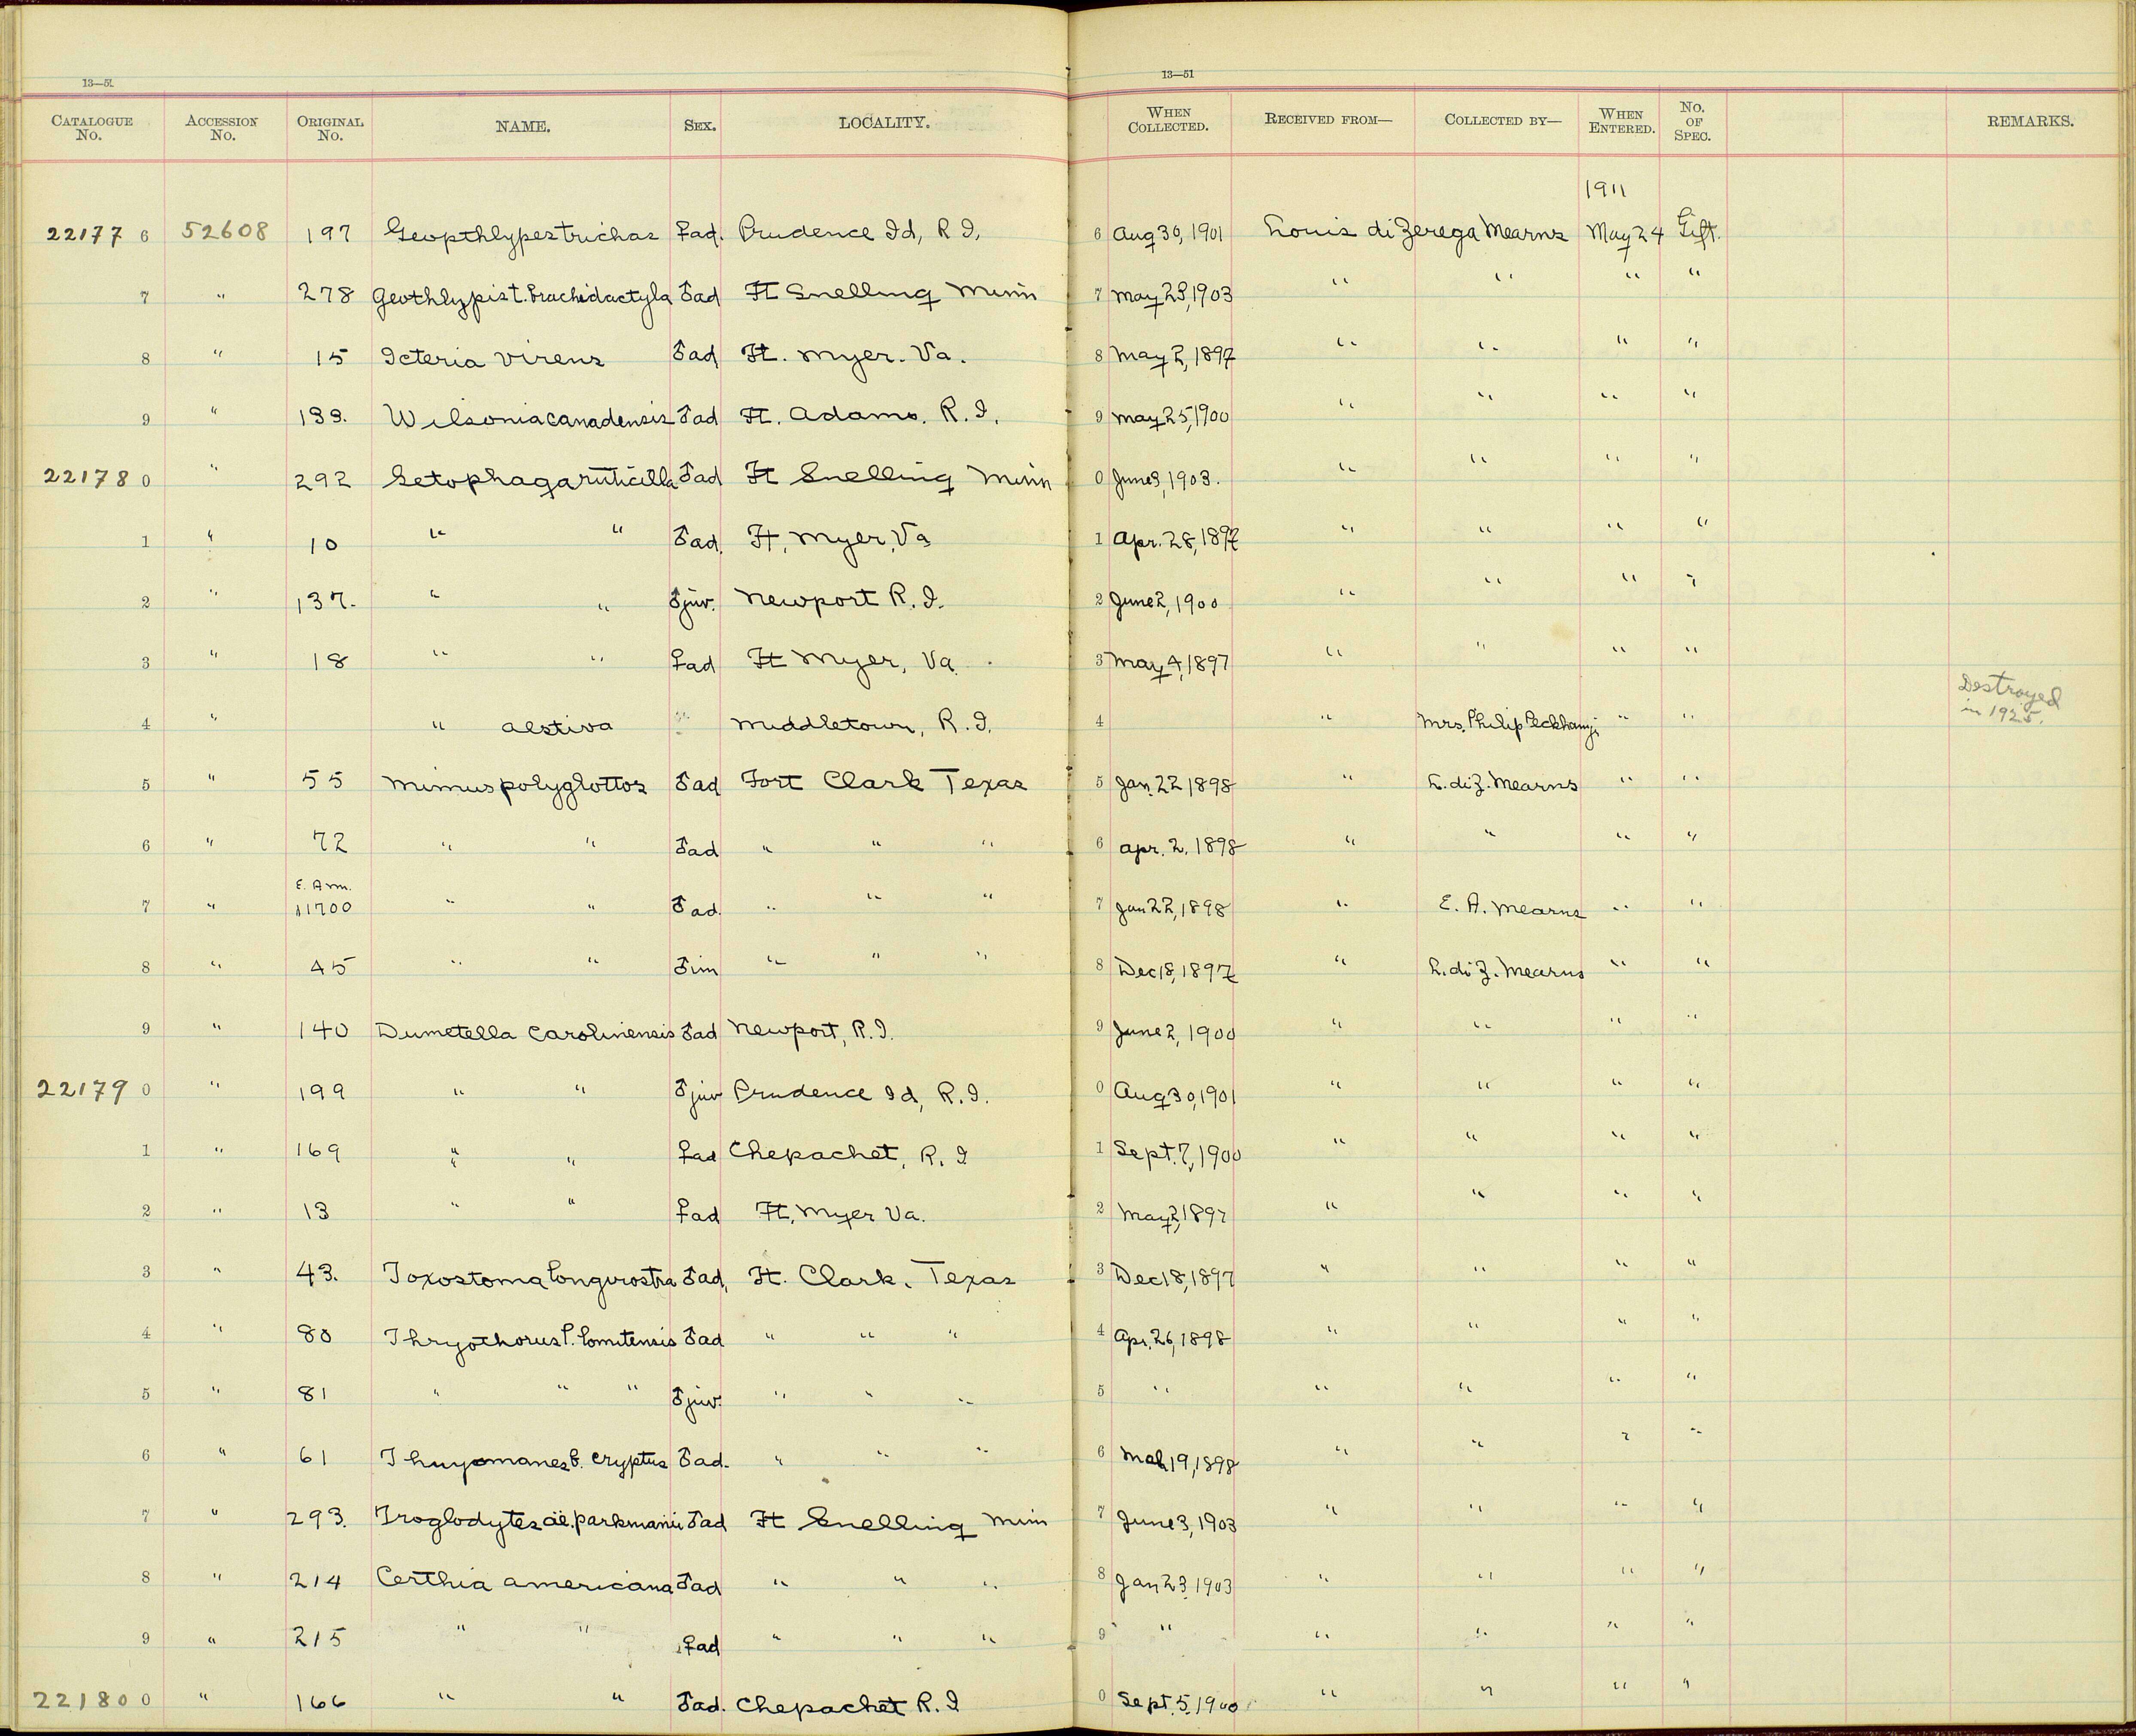 13—51
13—51
CATALOGUE No. ACCESSION No. ORIGINAL No. NAME. SEX. LOCALITY. WHEN COLLECTED. RECEIVED FROM— COLLECTED BY— WHEN ENTERED. No. OF SPEC. REMARKS.
1911
22177 6 52608 197 Geopthlypes trichas ♀ad. Prudence Id, R I, 6 Aug 30, 1901 Louis di Zerega Mearns May 24 Gift.
7 " 278 Geothlypis t. brachidactyla ♂ad Ft Snelling Minn 7 May 28, 1903 " " " "
8 " 15 Icteria virens ♂ad Ft. Myer. Va. 8 May 2, 1897 " " " "
9 " 133. Wilsonia canadensis ♂ad Ft. Adams. R. I. 9 May 25, 1900 " " " "
22178 0 " 292 Setophaga ruticilla ♂ad Ft Snelling Minn 0 June 3, 1903. " " " "
1 " 10 " " ♂ad. Ft. Myer, Va 1 Apr. 28, 1897 " " " "
2 " 137. " " ♂juv. Newport R. I. 2 June 2, 1900 " " " "
3 " 18 " " ♀ad Ft Myer, Va. 3 May 4, 1897 " " " "
4 " " aestiva " Middletown, R. I. 4 " Mrs. Philip Peckham, " " Destroyed in 1925.
5 " 55 Mimus polyglottos ♂ad Fort Clark Texas 5 Jan. 22 1898 " L. di Z. Mearns " "
6 " 72 " " ♂ad " " " 6 Apr. 2, 1898 " " " "
E. A. M.
7 " 11700 " " ♂ad. " " " 7 Jan 22, 1898 " E. A. Mearns " "
8 " 45 " " ♂im " " " 8 Dec 18, 1897 " L. di Z. Mearns " "
9 " 140 Dumetella carolinensis ♂ad Newport, R. I. 9 June 2, 1900 " " " "
22179 0 " 199 " " ♂juv Prudence Id, R. I. 0 Aug 30, 1901 " " " "
1 " 169 " " ♀ad Chepachet, R. I 1 Sept. 7, 1900 " " " "
2 " 13 " " ♀ad Ft. Myer Va. 2 May 2, 1897 " " " "
3 " 43. Toxostoma longirostra ♂ad, Ft. Clark, Texas 3 Dec 18, 1897 " " " "
4 " 80 Thryothorus l. lomitensis ♂ad " " " 4 Apr. 26, 1898 " " " "
5 " 81 " " " ♂juv. " " " 5 " " " " "
6 " 61 Thuyomanes b. cryptus ♂ad. " " " 6 Mch 19, 1898 " " " "
7 " 293. Troglodytes aë. parkmanii ♂ad Ft Snelling Minn 7 June 3, 1903 " " " "
8 " 214 Certhia americana ♂ad " " " 8 Jan 23 1903 " " " "
9 " 215 " " ♀ad " " " 9 " " " " "
22180 0 " 166 " " ♂ad. Chepachet R. I 0 Sept. 5, 1900 " " " "